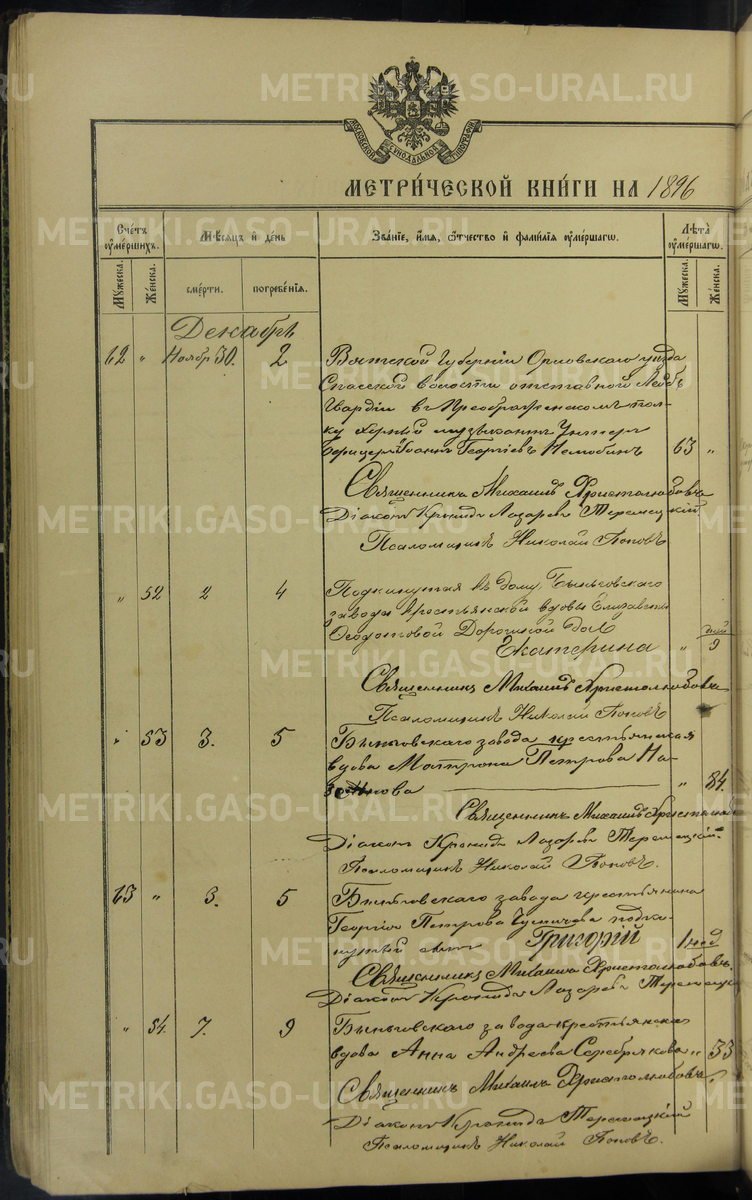 METRIKI.GASO-URAL.RU
МОСКОВСКОЙ СѴНОДАЛЬНОЙ ТИПОГРАФІИ
МЕТРИ́ЧЕСКОЙ КНИ́ГИ НА 1896
Сче́тъ оуме́ршихъ.
Мѣ́сяцъ и де́нь
Зва́ніе, и́мя, ѻ́тчество и фами́лія оуме́ршагѡ.
Лѣ́та оуме́ршагѡ.
Му́жеска.
Же́нска.
сме́рти.
погребе́нія.
Му́жеска.
Же́нска.
Декабрь
62 " Ноябр 30. 2 Вятской Губерніи Орловскаго уѣзда
Спасской волости отставной Лейбъ
Гвардіи в Преображенскомъ пол-
ку хорный музыкантъ Унтеръ
Офицеръ Іоаннъ Георгіевъ 63 "
Священникъ Михаилъ Христолюбовъ
Діаконъ Кронидъ Лазаревъ Теремецкій
Псаломщикъ Николай Поповъ
" 52 2 4 Подкинутая въ дому Быньговскаго
завода крестьянской вдовы Елизаветы
Ѳеодотовой
Екатерина " дней 9
Священникъ Михаилъ Христолюбовъ
Псаломщикъ Николай Поповъ
" 53 3. 5 Быньговскаго завода крестьянская
вдова Матрона Петрова На-
" 84.
Священникъ Михаилъ Христолюбовъ
Діаконъ Кронидъ Лазаревъ Теремецкій
Псаломщикъ Николай Поповъ.
63 " 3. 5 Быньговскаго завода крестьянина
Георгія Петрова подки-
нутый сынъ Григорій 1 нед
Священникъ Михаилъ Христолюбовъ.
Діаконъ Кронидъ Лазаревъ Теремецкій
" 54. 7. 9 Быньговскаго завода крестьянская
вдова Анна Андреева Серебрякова " 33
Священникъ Михаилъ Христолюбовъ
Діаконъ Кронидъ Теремецкій
Псаломщикъ Николай Поповъ.